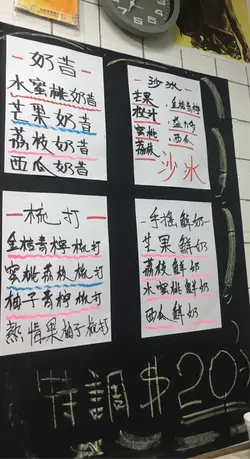 奶昔
水蜜桃奶昔
芒果奶昔
荔枝奶昔
西瓜奶昔
沙冰
芒果 · 金桔青檸
橙汁 · 益力多
蜜桃 · 西瓜
荔枝
沙冰
梳打
金桔青檸梳打
蜜桃荔枝梳打
柚子青檸梳打
熱情果柚子梳打
手搖鮮奶
芒果鮮奶
荔枝鮮奶
水蜜桃鮮奶
西瓜鮮奶
特調 $20